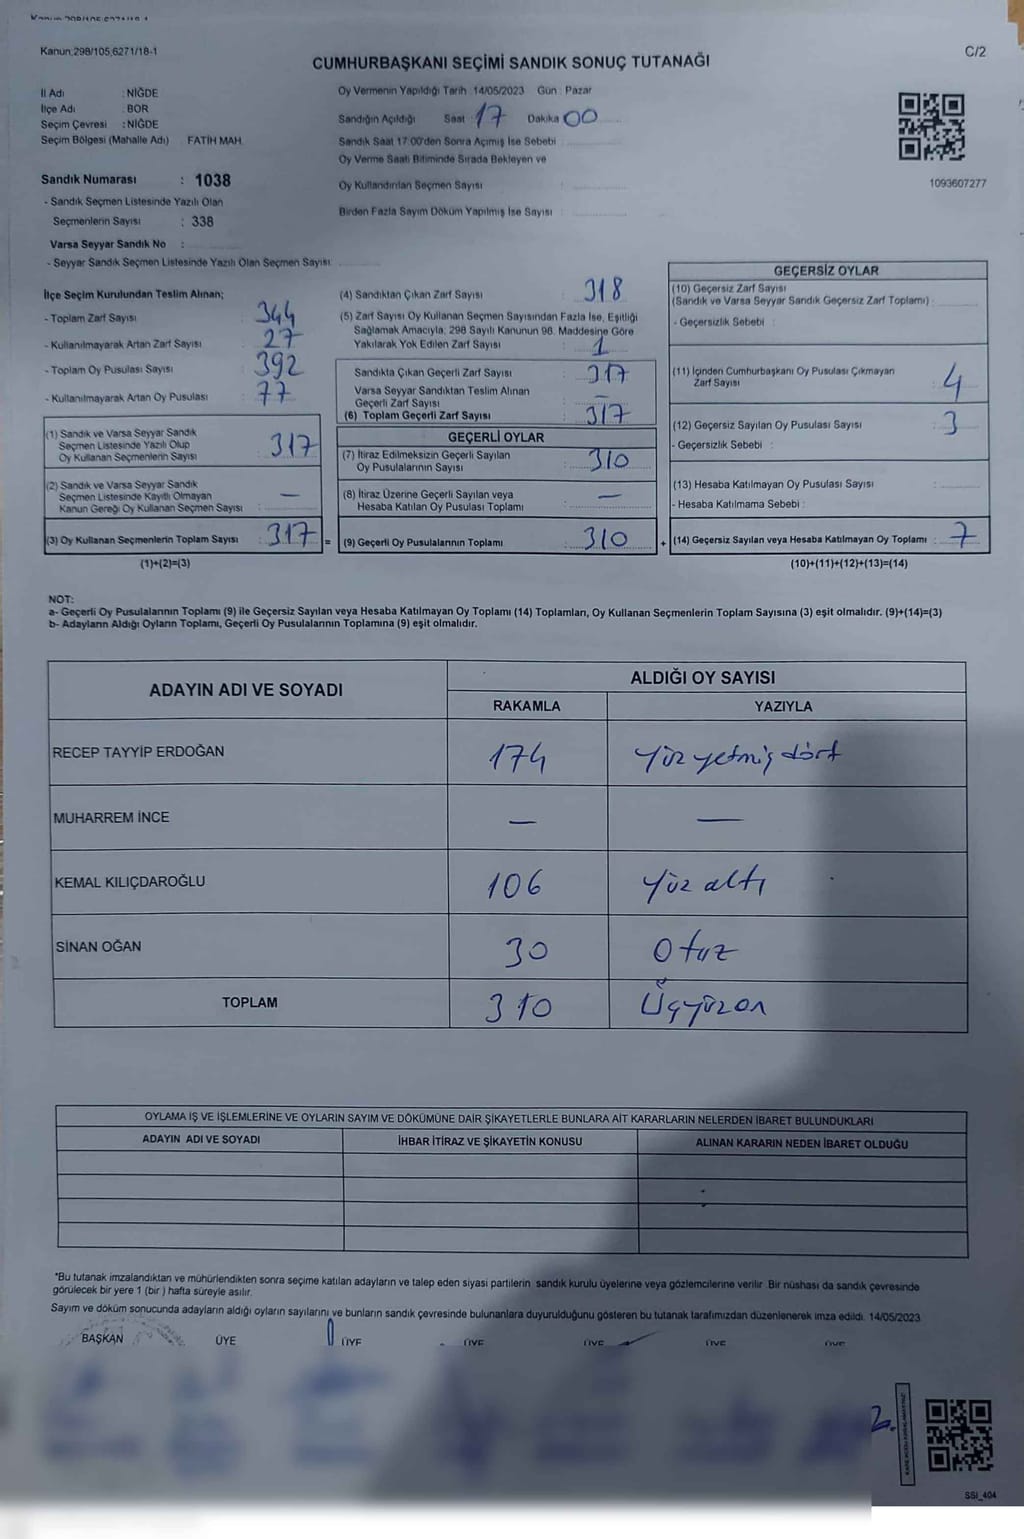 Kanun,298/105,6271/18-1
C/2
CUMHURBAŞKANI SEÇİMİ SANDIK SONUÇ TUTANAĞI
İl Adı : NİĞDE
İlçe Adı : BOR
Seçim Çevresi : NİĞDE
Seçim Bölgesi (Mahalle Adı) FATİH MAH.
Oy Vermenin Yapıldığı Tarih :14/05/2023 Gün : Pazar
Sandığın Açıldığı Saat : 17 Dakika 00
Sandık Saat 17:00'den Sonra Açımış İse Sebebi :
Oy Verme Saati Bitiminde Sırada Bekleyen ve
Oy Kullandırılan Seçmen Sayısı :
Birden Fazla Sayım Döküm Yapılmış İse Sayısı :
1093607277
Sandık Numarası : 1038
- Sandık Seçmen Listesinde Yazılı Olan
Seçmenlerin Sayısı : 338
Varsa Seyyar Sandık No :
- Seyyar Sandık Seçmen Listesinde Yazılı Olan Seçmen Sayısı:
İlçe Seçim Kurulundan Teslim Alınan;
- Toplam Zarf Sayısı : 344
- Kullanılmayarak Artan Zarf Sayısı : 27
- Toplam Oy Pusulası Sayısı : 392
- Kullanılmayarak Artan Oy Pusulası : 77
(1) Sandık ve Varsa Seyyar Sandık
Seçmen Listesinde Yazılı Olup
Oy Kullanan Seçmenlerin Sayısı : 317
(2) Sandık ve Varsa Seyyar Sandık
Seçmen Listesinde Kayıtlı Olmayan
Kanun Gereği Oy Kullanan Seçmen Sayısı : —
(3) Oy Kullanan Seçmenlerin Toplam Sayısı : 317 =
(1)+(2)=(3)
(4) Sandıktan Çıkan Zarf Sayısı : 318
(5) Zarf Sayısı Oy Kullanan Seçmen Sayısından Fazla İse, Eşitliği
Sağlamak Amacıyla; 298 Sayılı Kanunun 98. Maddesine Göre
Yakılarak Yok Edilen Zarf Sayısı : 1
Sandıkta Çıkan Geçerli Zarf Sayısı : 317
Varsa Seyyar Sandıktan Teslim Alınan
Geçerli Zarf Sayısı : —
(6) Toplam Geçerli Zarf Sayısı : 317
GEÇERLİ OYLAR
(7) İtiraz Edilmeksizin Geçerli Sayılan
Oy Pusulalarının Sayısı : 310
(8) İtiraz Üzerine Geçerli Sayılan veya
Hesaba Katılan Oy Pusulası Toplamı : —
(9) Geçerli Oy Pusulalarının Toplamı : 310 +
GEÇERSİZ OYLAR
(10) Geçersiz Zarf Sayısı
(Sandık ve Varsa Seyyar Sandık Geçersiz Zarf Toplamı) :
- Geçersizlik Sebebi :
(11) İçinden Cumhurbaşkanı Oy Pusulası Çıkmayan
Zarf Sayısı : 4
(12) Geçersiz Sayılan Oy Pusulası Sayısı : 3
- Geçersizlik Sebebi :
(13) Hesaba Katılmayan Oy Pusulası Sayısı :
- Hesaba Katılmama Sebebi :
(14) Geçersiz Sayılan veya Hesaba Katılmayan Oy Toplamı : 7
(10)+(11)+(12)+(13)=(14)
NOT:
a- Geçerli Oy Pusulalarının Toplamı (9) ile Geçersiz Sayılan veya Hesaba Katılmayan Oy Toplamı (14) Toplamları, Oy Kullanan Seçmenlerin Toplam Sayısına (3) eşit olmalıdır. (9)+(14)=(3)
b- Adayların Aldığı Oyların Toplamı, Geçerli Oy Pusulalarının Toplamına (9) eşit olmalıdır.
ADAYIN ADI VE SOYADI
ALDIĞI OY SAYISI
RAKAMLA YAZIYLA
RECEP TAYYİP ERDOĞAN 174 Yüz yetmiş dört
MUHARREM İNCE — —
KEMAL KILIÇDAROĞLU 106 Yüz altı
SİNAN OĞAN 30 Otuz
TOPLAM 310 Üçyüzon
OYLAMA İŞ VE İŞLEMLERİNE VE OYLARIN SAYIM VE DÖKÜMÜNE DAİR ŞİKAYETLERLE BUNLARA AİT KARARLARIN NELERDEN İBARET BULUNDUKLARI
ADAYIN ADI VE SOYADI İHBAR İTİRAZ VE ŞİKAYETİN KONUSU ALINAN KARARIN NEDEN İBARET OLDUĞU
*Bu tutanak imzalandıktan ve mühürlendikten sonra seçime katılan adayların ve talep eden siyasi partilerin sandık kurulu üyelerine veya gözlemcilerine verilir. Bir nüshası da sandık çevresinde
görülecek bir yere 1 (bir) hafta süreyle asılır.
Sayım ve döküm sonucunda adayların aldığı oyların sayılarını ve bunların sandık çevresinde bulunanlara duyurulduğunu gösteren bu tutanak tarafımızdan düzenlenerek imza edildi. 14/05/2023
BAŞKAN ÜYE ÜYE ÜYE ÜYE ÜYE ÜYE
SSI_404